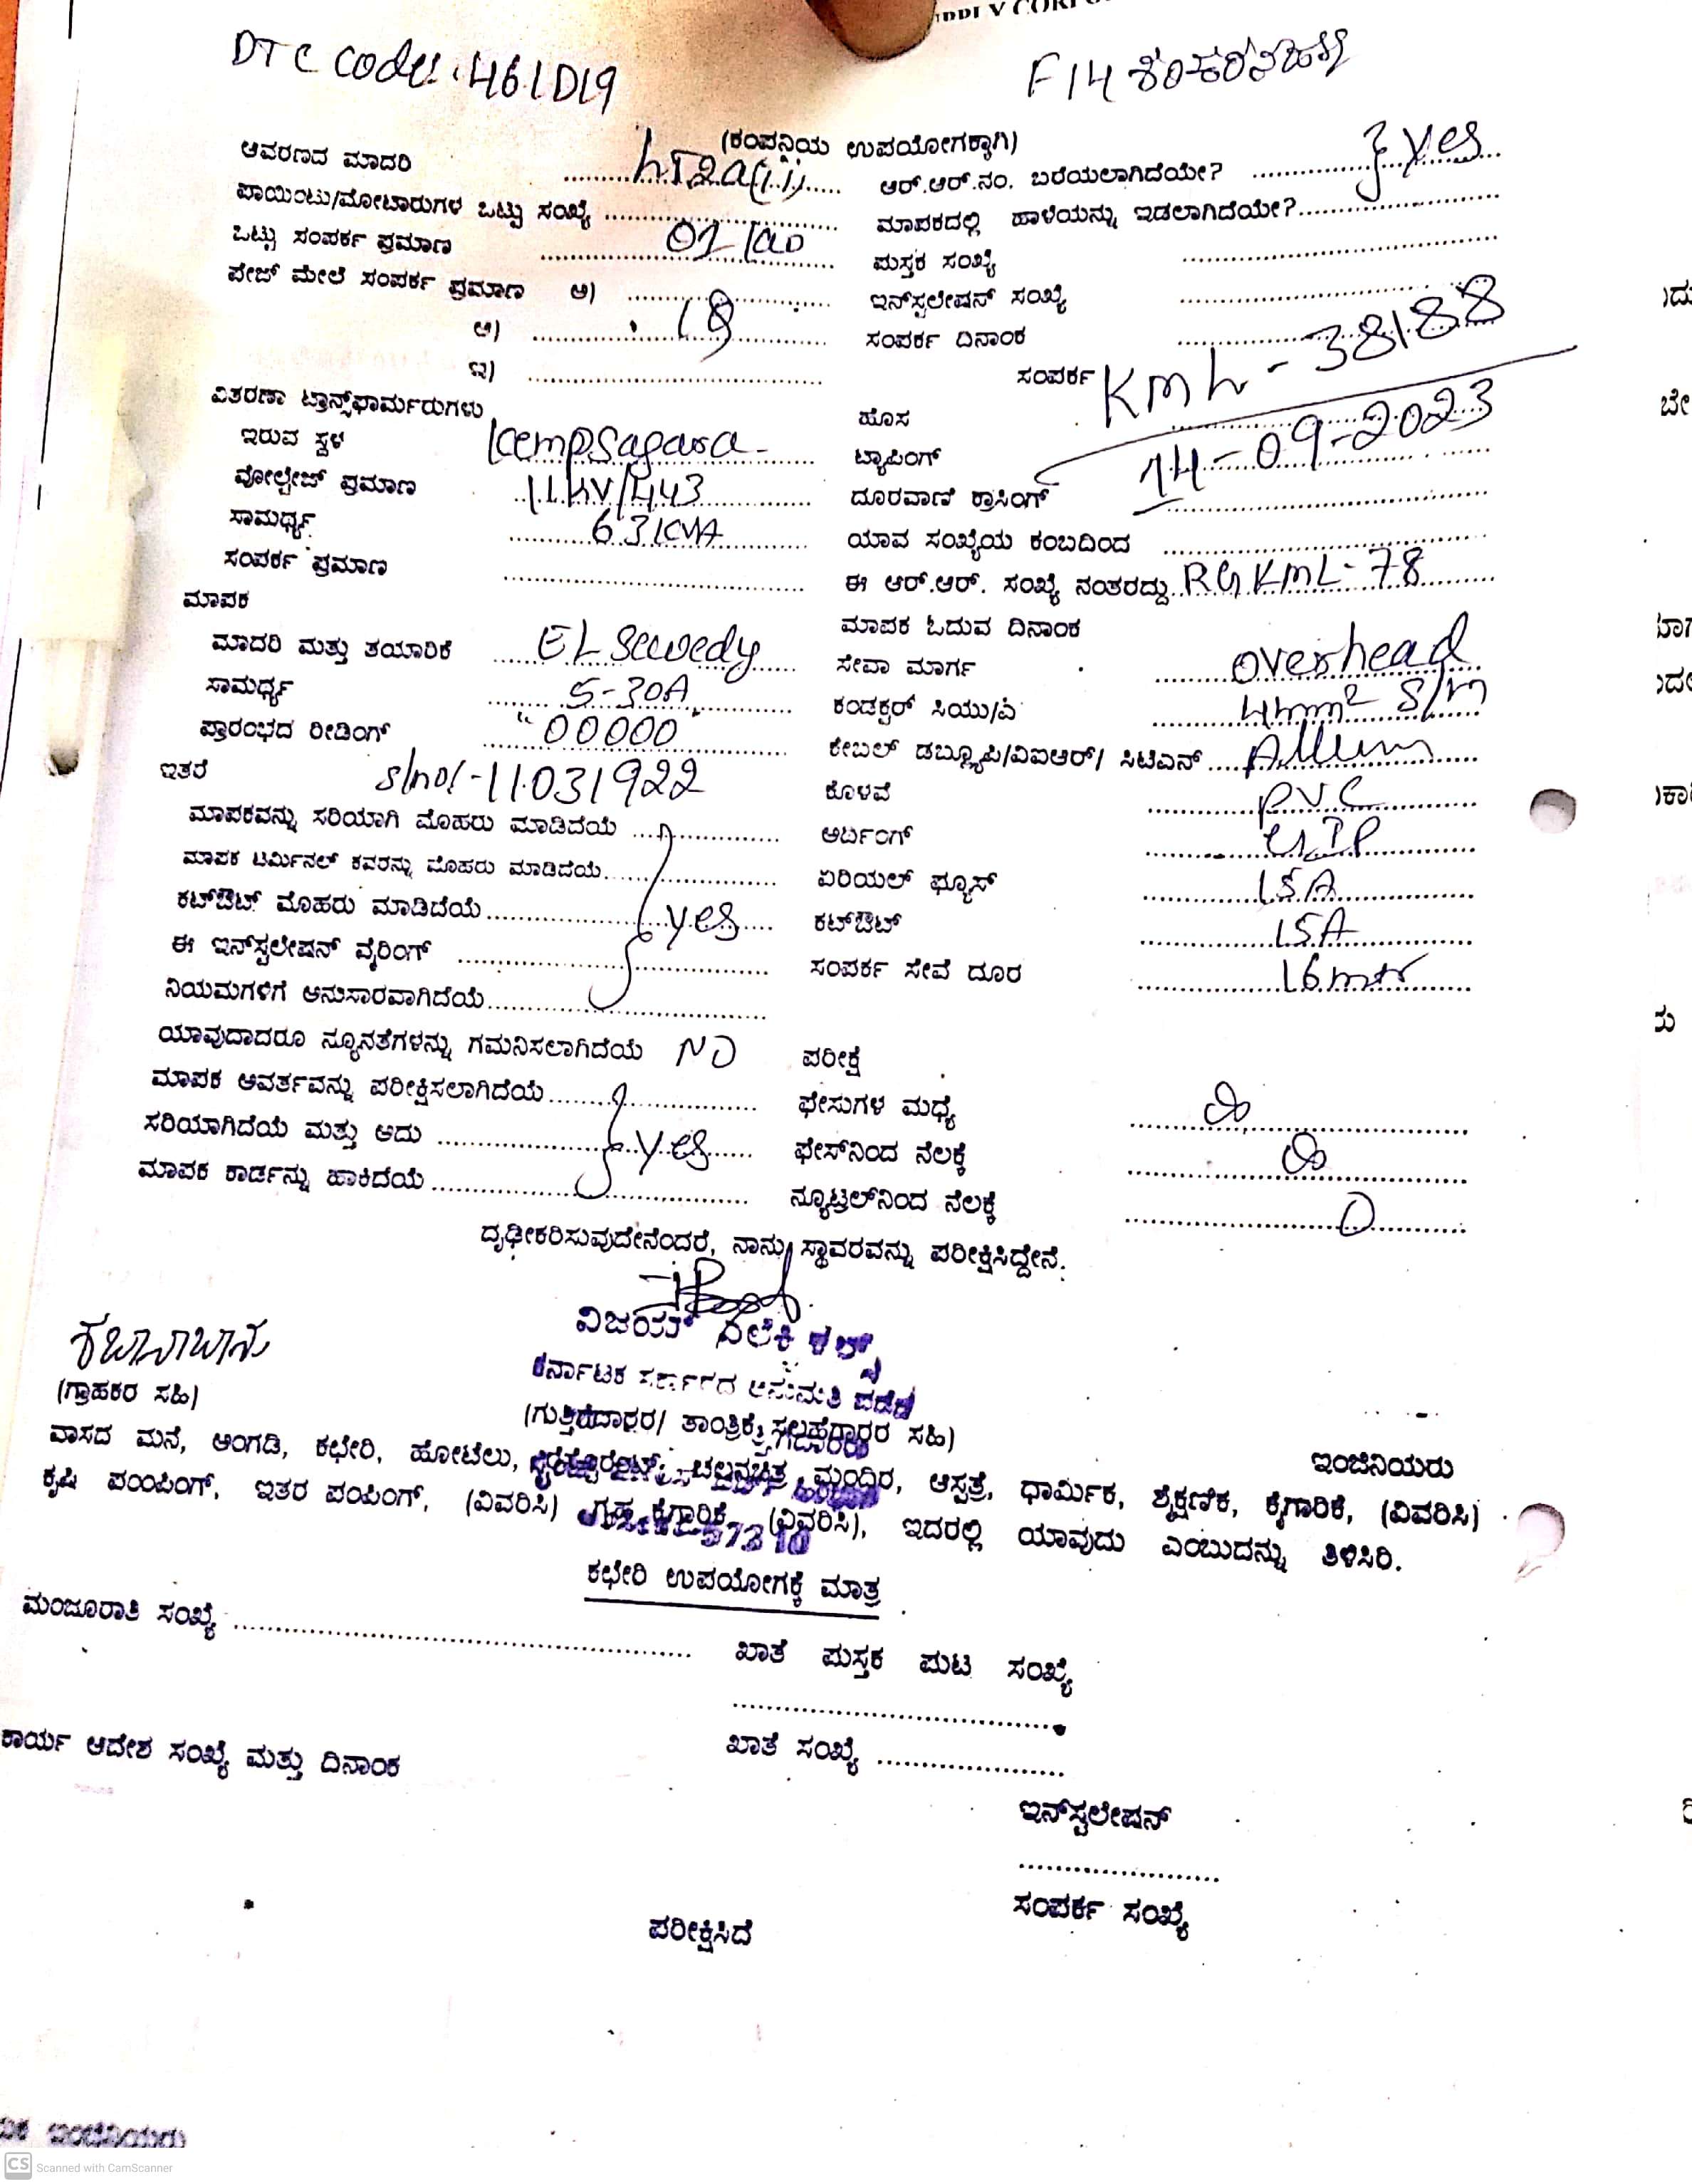 DTC code: 461D19
F14
(ಕಂಪನಿಯ ಉಪಯೋಗಕ್ಕಾಗಿ)
ಆವರಣದ ಮಾದರಿ
ಆರ್.ಆರ್.ನಂ. ಬರೆಯಲಾಗಿದೆಯೇ? yes
ಪಾಯಿಂಟು/ಮೋಟಾರುಗಳ ಒಟ್ಟು ಸಂಖ್ಯೆ
ಮಾಪಕದಲ್ಲಿ ಹಾಳೆಯನ್ನು ಇಡಲಾಗಿದೆಯೇ?
ಒಟ್ಟು ಸಂಪರ್ಕ ಪ್ರಮಾಣ
ಪುಸ್ತಕ ಸಂಖ್ಯೆ
ಪೇಜ್ ಮೇಲೆ ಸಂಪರ್ಕ ಪ್ರಮಾಣ ಅ)
ಇನ್‌ಸ್ಟಲೇಷನ್ ಸಂಖ್ಯೆ
ಆ)
ಸಂಪರ್ಕ ದಿನಾಂಕ
ಇ)
ಸಂಪರ್ಕ KML-38188
ವಿತರಣಾ ಟ್ರಾನ್ಸ್‌ಫಾರ್ಮರುಗಳು
ಹೊಸ
ಇರುವ ಸ್ಥಳ Kempsagara
ಟ್ಯಾಪಿಂಗ್ 14-09-2023
ವೋಲ್ಟೇಜ್ ಪ್ರಮಾಣ 11kV/443
ದೂರವಾಣಿ ಕ್ರಾಸಿಂಗ್
ಸಾಮರ್ಥ್ಯ 63KVA
ಯಾವ ಸಂಖ್ಯೆಯ ಕಂಬದಿಂದ
ಸಂಪರ್ಕ ಪ್ರಮಾಣ
ಈ ಆರ್.ಆರ್. ಸಂಖ್ಯೆ ನಂತರದ್ದು RGKML-78
ಮಾಪಕ
ಮಾಪಕ ಓದುವ ದಿನಾಂಕ
ಮಾದರಿ ಮತ್ತು ತಯಾರಿಕೆ EL Sewedy
ಸೇವಾ ಮಾರ್ಗ overhead
ಸಾಮರ್ಥ್ಯ 5-30A
ಕಂಡಕ್ಟರ್ ಸಿಯು/ಎ 4mm² S/m
ಪ್ರಾರಂಭದ ರೀಡಿಂಗ್ "00000
ಕೇಬಲ್ ಡಬ್ಲ್ಯೂಪಿ/ವಿಐಆರ್/ ಸಿಟಿಎಸ್
ಇತರೆ s/no:-11031922
ಕೊಳವೆ PVC
ಮಾಪಕವನ್ನು ಸರಿಯಾಗಿ ಮೊಹರು ಮಾಡಿದೆಯೆ
ಅರ್ದಿಂಗ್
ಮಾಪಕ ಟರ್ಮಿನಲ್ ಕವರನ್ನು ಮೊಹರು ಮಾಡಿದೆಯೆ
ಏರಿಯಲ್ ಫ್ಯೂಸ್ 15A
ಕಟ್‌ಔಟ್ ಮೊಹರು ಮಾಡಿದೆಯೆ yes
ಕಟ್‌ಔಟ್ 15A
ಈ ಇನ್‌ಸ್ಟಲೇಷನ್ ವೈರಿಂಗ್
ಸಂಪರ್ಕ ಸೇವೆ ದೂರ 16mtr
ನಿಯಮಗಳಿಗೆ ಅನುಸಾರವಾಗಿದೆಯೆ
ಯಾವುದಾದರೂ ನ್ಯೂನತೆಗಳನ್ನು ಗಮನಿಸಲಾಗಿದೆಯೆ NO
ಪರೀಕ್ಷೆ
ಮಾಪಕ ಆವರ್ತವನ್ನು ಪರೀಕ್ಷಿಸಲಾಗಿದೆಯೆ
ಫೇಸುಗಳ ಮಧ್ಯೆ
ಸರಿಯಾಗಿದೆಯೆ ಮತ್ತು ಅದು yes
ಫೇಸ್‌ನಿಂದ ನೆಲಕ್ಕೆ
ಮಾಪಕ ಕಾರ್ಡನ್ನು ಹಾಕಿದೆಯೆ
ನ್ಯೂಟ್ರಲ್‌ನಿಂದ ನೆಲಕ್ಕೆ 0
ದೃಢೀಕರಿಸುವುದೇನೆಂದರೆ, ನಾನು ಸ್ಥಾವರವನ್ನು ಪರೀಕ್ಷಿಸಿದ್ದೇನೆ.
ಕರ್ನಾಟಕ ಸರ್ಕಾರದ ಅನುಮತಿ ಪಡೆದ
(ಗ್ರಾಹಕರ ಸಹಿ)
(ಗುತ್ತಿಗೆದಾರರ/ ತಾಂತ್ರಿಕ ಸಲಹೆಗಾರರ ಸಹಿ)
ಇಂಜಿನಿಯರು
ವಾಸದ ಮನೆ, ಅಂಗಡಿ, ಕಛೇರಿ, ಹೋಟೆಲು, ಚಲನಚಿತ್ರ ಮಂದಿರ, ಆಸ್ಪತ್ರೆ, ಧಾರ್ಮಿಕ, ಶೈಕ್ಷಣಿಕ, ಕೈಗಾರಿಕೆ, (ವಿವರಿಸಿ)
ಕೃಷಿ ಪಂಪಿಂಗ್, ಇತರ ಪಂಪಿಂಗ್, (ವಿವರಿಸಿ) ಗೃಹ ಕೈಗಾರಿಕೆ (ವಿವರಿಸಿ), ಇದರಲ್ಲಿ ಯಾವುದು ಎಂಬುದನ್ನು ತಿಳಿಸಿರಿ.
ಕಛೇರಿ ಉಪಯೋಗಕ್ಕೆ ಮಾತ್ರ
ಮಂಜೂರಾತಿ ಸಂಖ್ಯೆ
ಖಾತೆ ಪುಸ್ತಕ ಪುಟ ಸಂಖ್ಯೆ
ಕಾರ್ಯ ಆದೇಶ ಸಂಖ್ಯೆ ಮತ್ತು ದಿನಾಂಕ
ಖಾತೆ ಸಂಖ್ಯೆ
ಇನ್‌ಸ್ಟಲೇಷನ್
ಸಂಪರ್ಕ ಸಂಖ್ಯೆ
ಪರೀಕ್ಷಿಸಿದೆ
CS Scanned with CamScanner